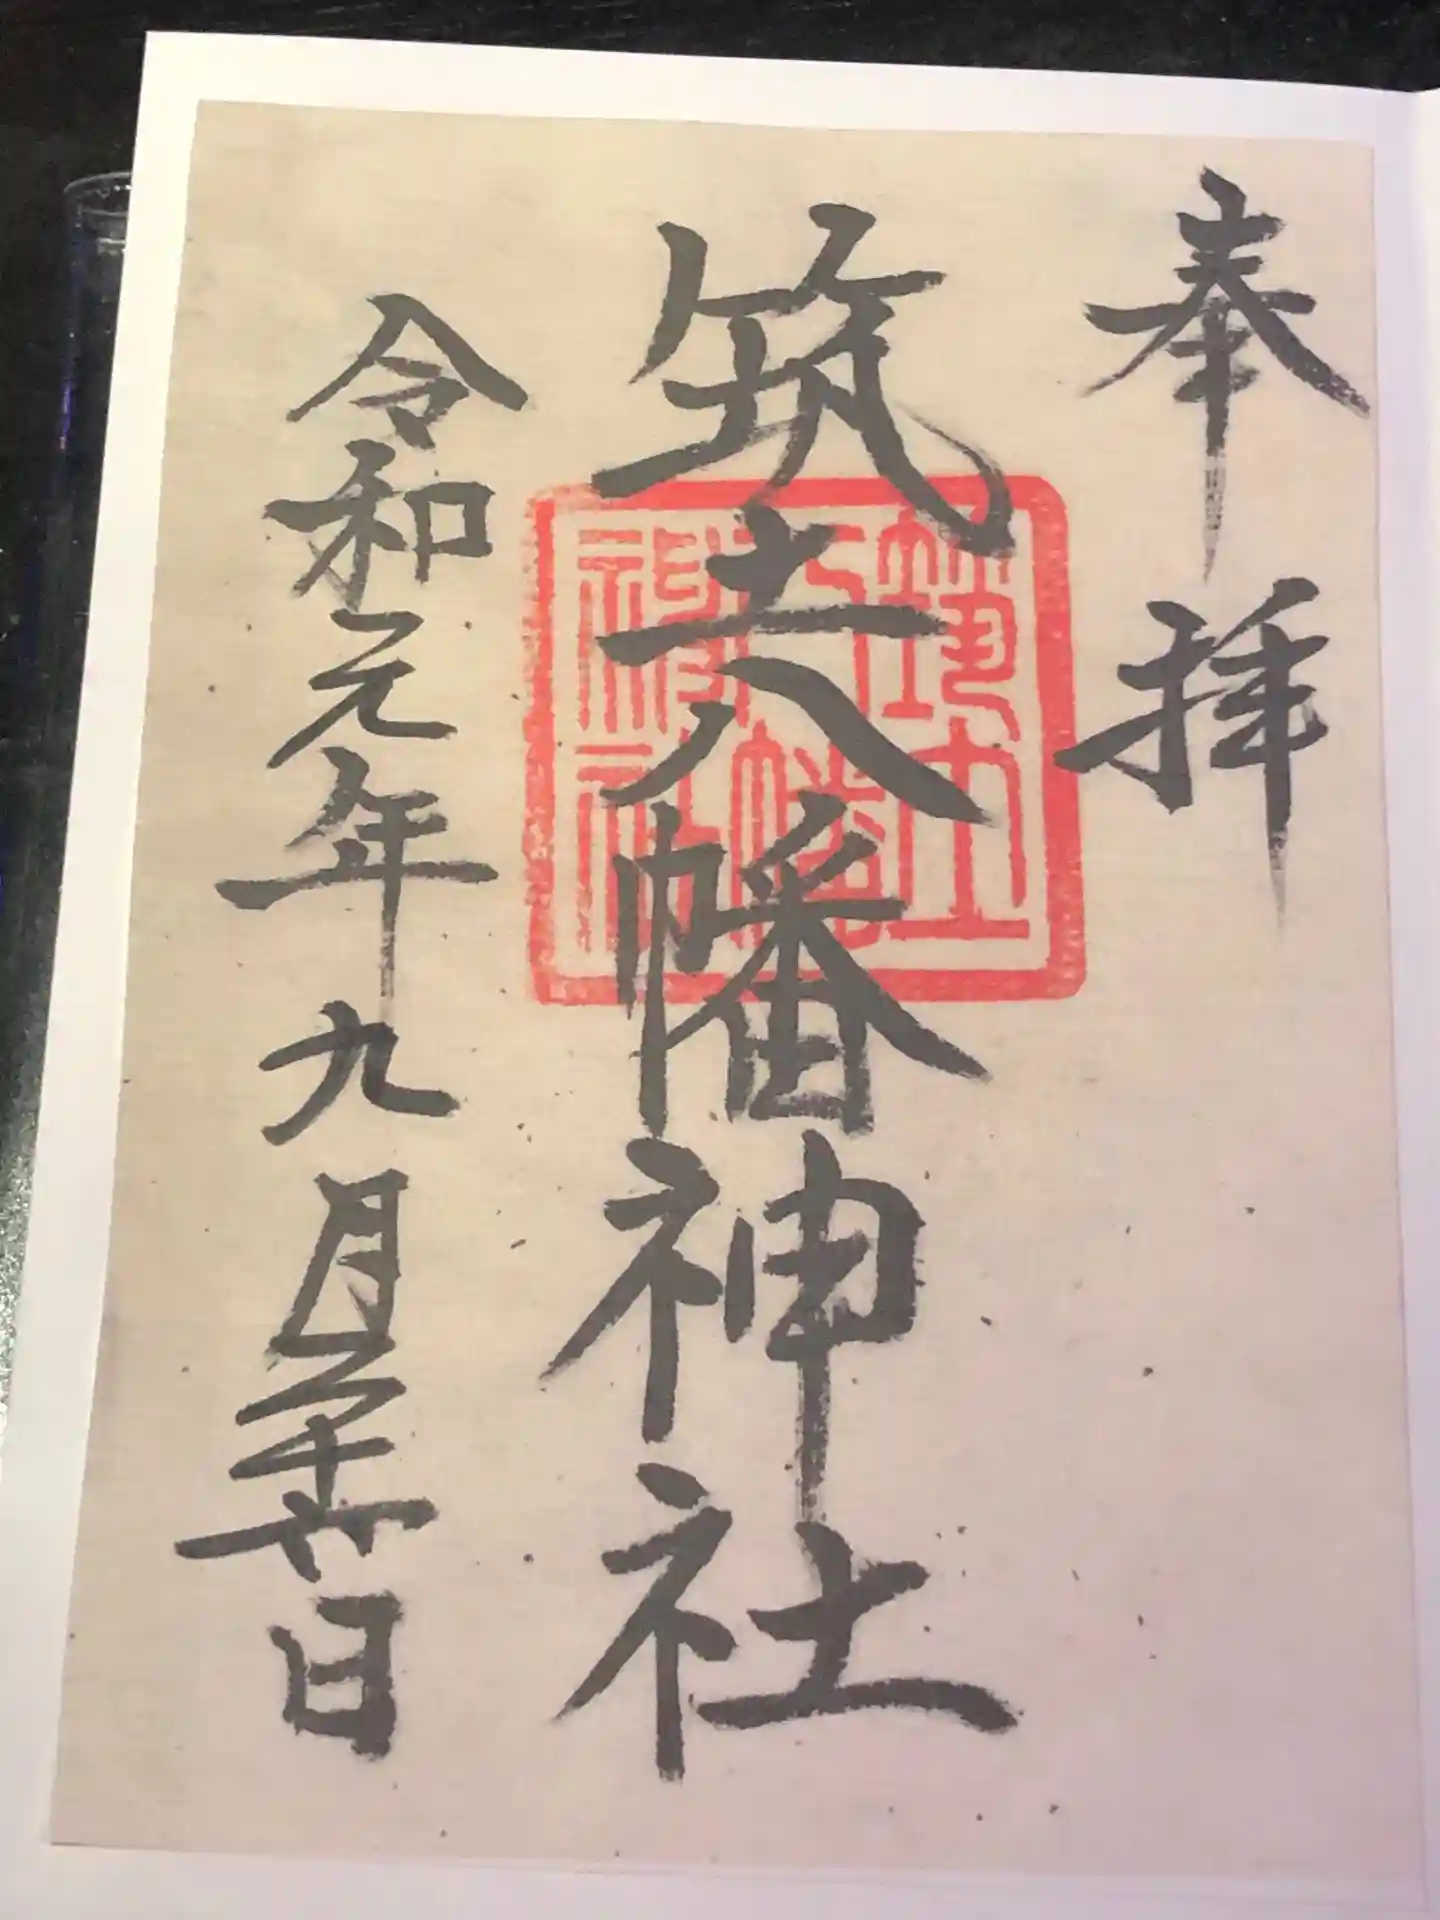 奉拝
筑土八幡神社
令和元年九月二十六日
筑土
八幡
神社